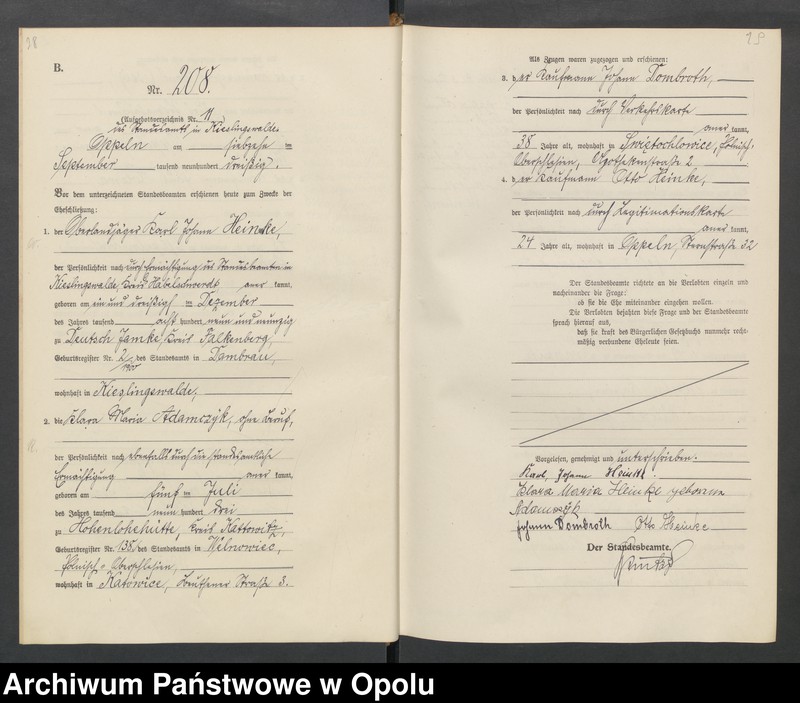 98
B.
Nr. 208.
(Aufgebotsverzeichnis Nr. 11
des Standesamts in Kieslingswalde.
Oppeln am siebzehn im
September tausend neunhundert dreißig.
Vor dem unterzeichneten Standesbeamten erschienen heute zum Zweck der
Eheschließung:
1. der Oberlandjäger Karl Johann Heinke,
der Persönlichkeit nach durch Ermächtigung des Standesbeamten in
Kieslingswalde, Kreis Habelschwerdt aner kannt,
geboren am ein und dreißigs im Dezember
des Jahres tausend acht hundert neun und neunzig
zu Deutsch Jamke, Kreis Falkenberg,
Geburtsregister Nr. 2/1900 des Standesamts in Dambrau,
wohnhaft in Kieslingswalde,
2. die Klara Maria Adamczyk, ohne Beruf,
der Persönlichkeit nach ebenfalls durch die standesamtliche
Ermächtigung aner kannt,
geboren am fünf im Juli
des Jahres tausend neun hundert drei
zu Hohenlohehütte, Kreis Kattowitz,
Geburtsregister Nr. 138 des Standesamts in Welnowiec,
Polnisch-Oberschlesien,
wohnhaft in Katowice, Beuthener Straße 3.
Als Zeugen waren zugezogen und erschienen:
3. der Kaufmann Johann Dombroth,
der Persönlichkeit nach durch Verkehrskarte
aner kannt,
38 Jahre alt, wohnhaft zu Swiętochlowice, Polnisch-
Oberschlesien, straße 2
4. der Kaufmann Otto Heinke,
der Persönlichkeit nach durch Legitimationskarte
aner kannt,
24 Jahre alt, wohnhaft in Oppeln, Sternstraße 32
Der Standesbeamte richtete an die Verlobten einzeln und
nacheinander die Frage:
ob sie die Ehe miteinander eingehen wollen.
Die Verlobten bejahten diese Frage und der Standesbeamte
sprach hierauf aus,
daß sie kraft des Bürgerlichen Gesetzbuchs nunmehr recht-
mäßig verbundene Eheleute seien.
Vorgelesen, genehmigt und unterschrieben.
Karl, Johann Heinke.
Klara Maria Heinke geborene
Adamczyk
Johann Dombroth Otto Heinke
Der Standesbeamte.
Archiwum Państwowe w Opolu